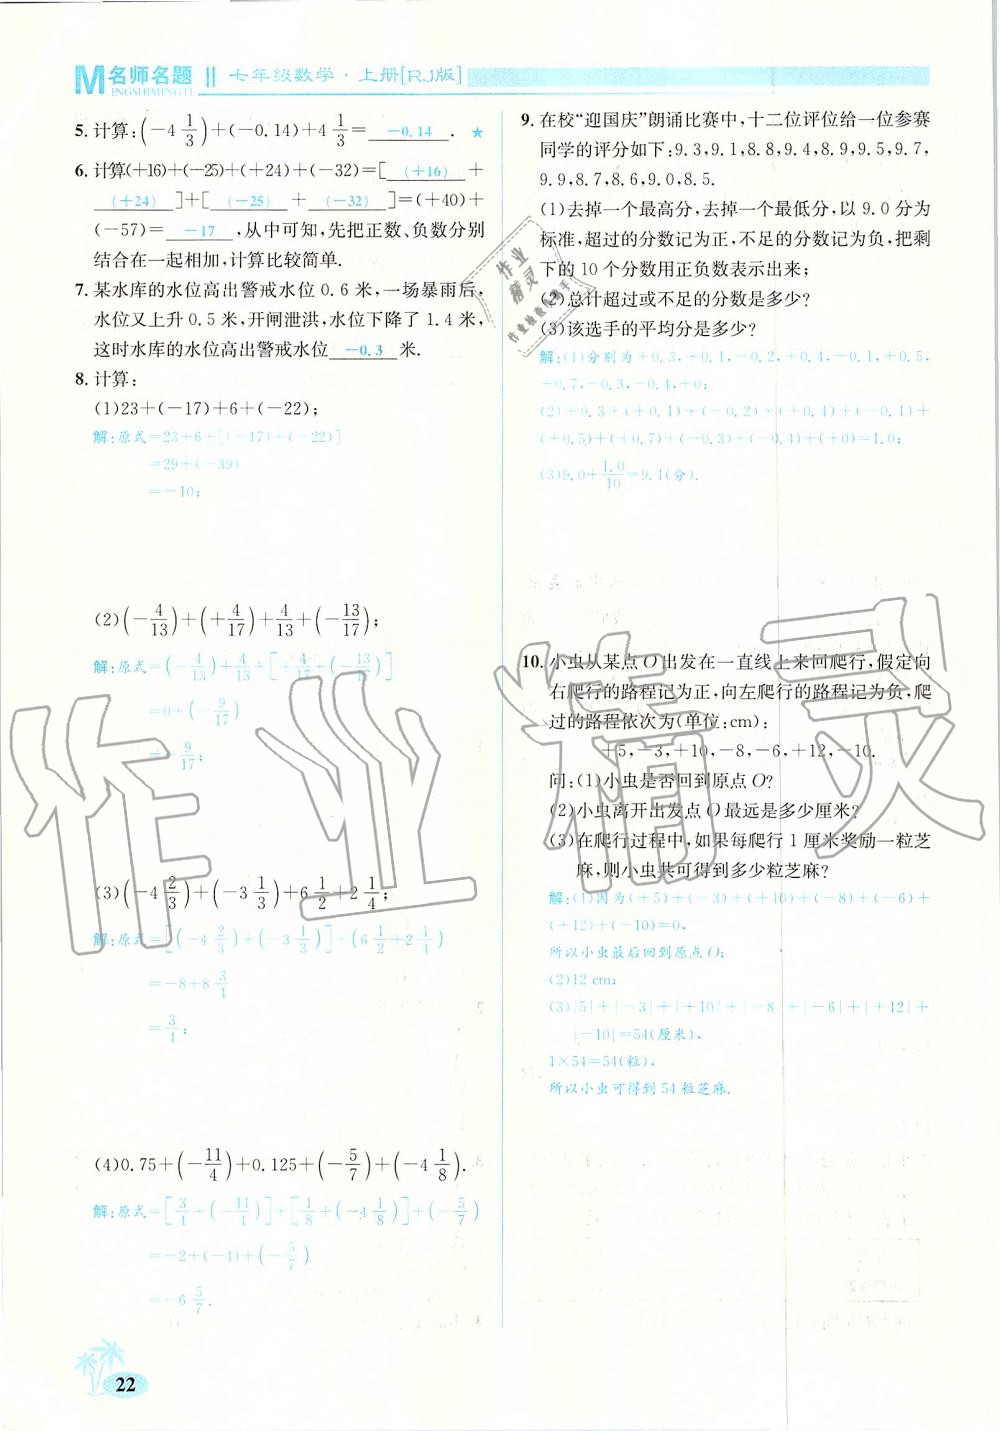 M 名师名题 ‖ 七年级数学·上册[RJ版]
INGSHIMINGTI
5. 计算:(-4 1/3)+(-0.14)+4 1/3=-0.14. ★
6. 计算(+16)+(-25)+(+24)+(-32)=[(+16)+
(+24)]+[(-25)+(-32)]=(+40)+
(-57)=-17,从中可知,先把正数、负数分别
结合在一起相加,计算比较简单.
7. 某水库的水位高出警戒水位 0.6 米,一场暴雨后,
水位又上升 0.5 米,开闸泄洪,水位下降了 1.4 米,
这时水库的水位高出警戒水位 -0.3 米.
8. 计算:
(1)23+(-17)+6+(-22);
解:原式=23+6+[(-17)+(-22)]
=29+(-39)
=-10;
(2)(-4/13)+(+4/17)+4/13+(-13/17);
解:原式=(-4/13)+4/13+[+4/17+(-13/17)]
=0+(-9/17)
=-9/17;
(3)(-4 2/3)+(-3 1/3)+6 1/2+2 1/4;
解:原式=[(-4 2/3)+(-3 1/3)]+(6 1/2+2 1/4)
=-8+8 3/4
=3/4;
(4)0.75+(-11/4)+0.125+(-5/7)+(-4 1/8).
解:原式=[3/4+(-11/4)]+[1/8+(-4 1/8)]+(-5/7)
=-2+(-4)+(-5/7)
=-6 5/7.
9. 在校“迎国庆”朗诵比赛中,十二位评位给一位参赛
同学的评分如下:9.3,9.1,8.8,9.4,8.9,9.5,9.7,
9.9,8.7,8.6,9.0,8.5.
(1)去掉一个最高分,去掉一个最低分,以 9.0 分为
标准,超过的分数记为正,不足的分数记为负,把剩
下的 10 个分数用正负数表示出来;
(2)总计超过或不足的分数是多少?
(3)该选手的平均分是多少?
解:(1)分别为+0.3,+0.1,-0.2,+0.4,-0.1,+0.5,
+0.7,-0.3,-0.4,0;
(2)+0.3+(+0.1)+(-0.2)+(+0.4)+(-0.1)+
(+0.5)+(+0.7)+(-0.3)+(-0.4)+(+0)=1.0;
(3)9.0+1.0/10=9.1(分).
10. 小虫从某点 O 出发在一直线上来回爬行,假定向
右爬行的路程记为正,向左爬行的路程记为负,爬
过的路程依次为(单位:cm):
+5,-3,+10,-8,-6,+12,-10.
问:(1)小虫是否回到原点 O?
(2)小虫离开出发点 O 最远是多少厘米?
(3)在爬行过程中,如果每爬行 1 厘米奖励一粒芝
麻,则小虫共可得到多少粒芝麻?
解:(1)因为(+5)+(-3)+(+10)+(-8)+(-6)+
(+12)+(-10)=0,
所以小虫最后回到原点 O;
(2)12 cm;
(3)|5|+|-3|+|+10|+|-8|+|-6|+|+12|+
|-10|=54(厘米),
1×54=54(粒),
所以小虫可得到 54 粒芝麻.
22
作业精灵
作业
精灵